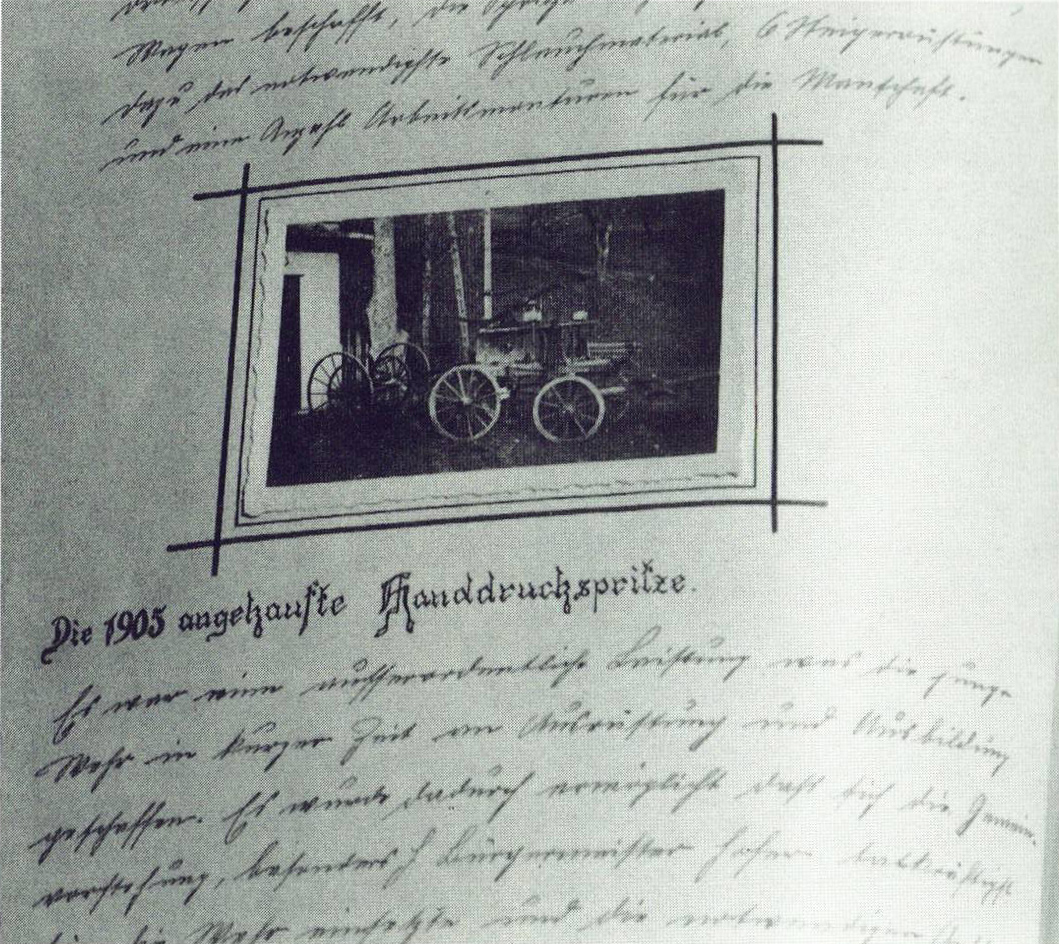 Wagen beschafft, die Spritze
dazu das notwendigste Schlauchmaterial, 6 Steigerrüstungen
und eine Anzahl Arbeitsmonturen für die Manschaft.
Die 1905 angekaufte Handdruckspritze.
Es war eine aufserordentliche Leistung was die junge
Wehr in kurzer Zeit an Ausrüstung und Ausbildung
geschaffen. Es wurde dadurch ermöglicht daß sich die Gemein-
vorstehung, besonders H. Bürgermeister Hofer tatkräftigst
für die Wehr einsetzte und die notwendigen